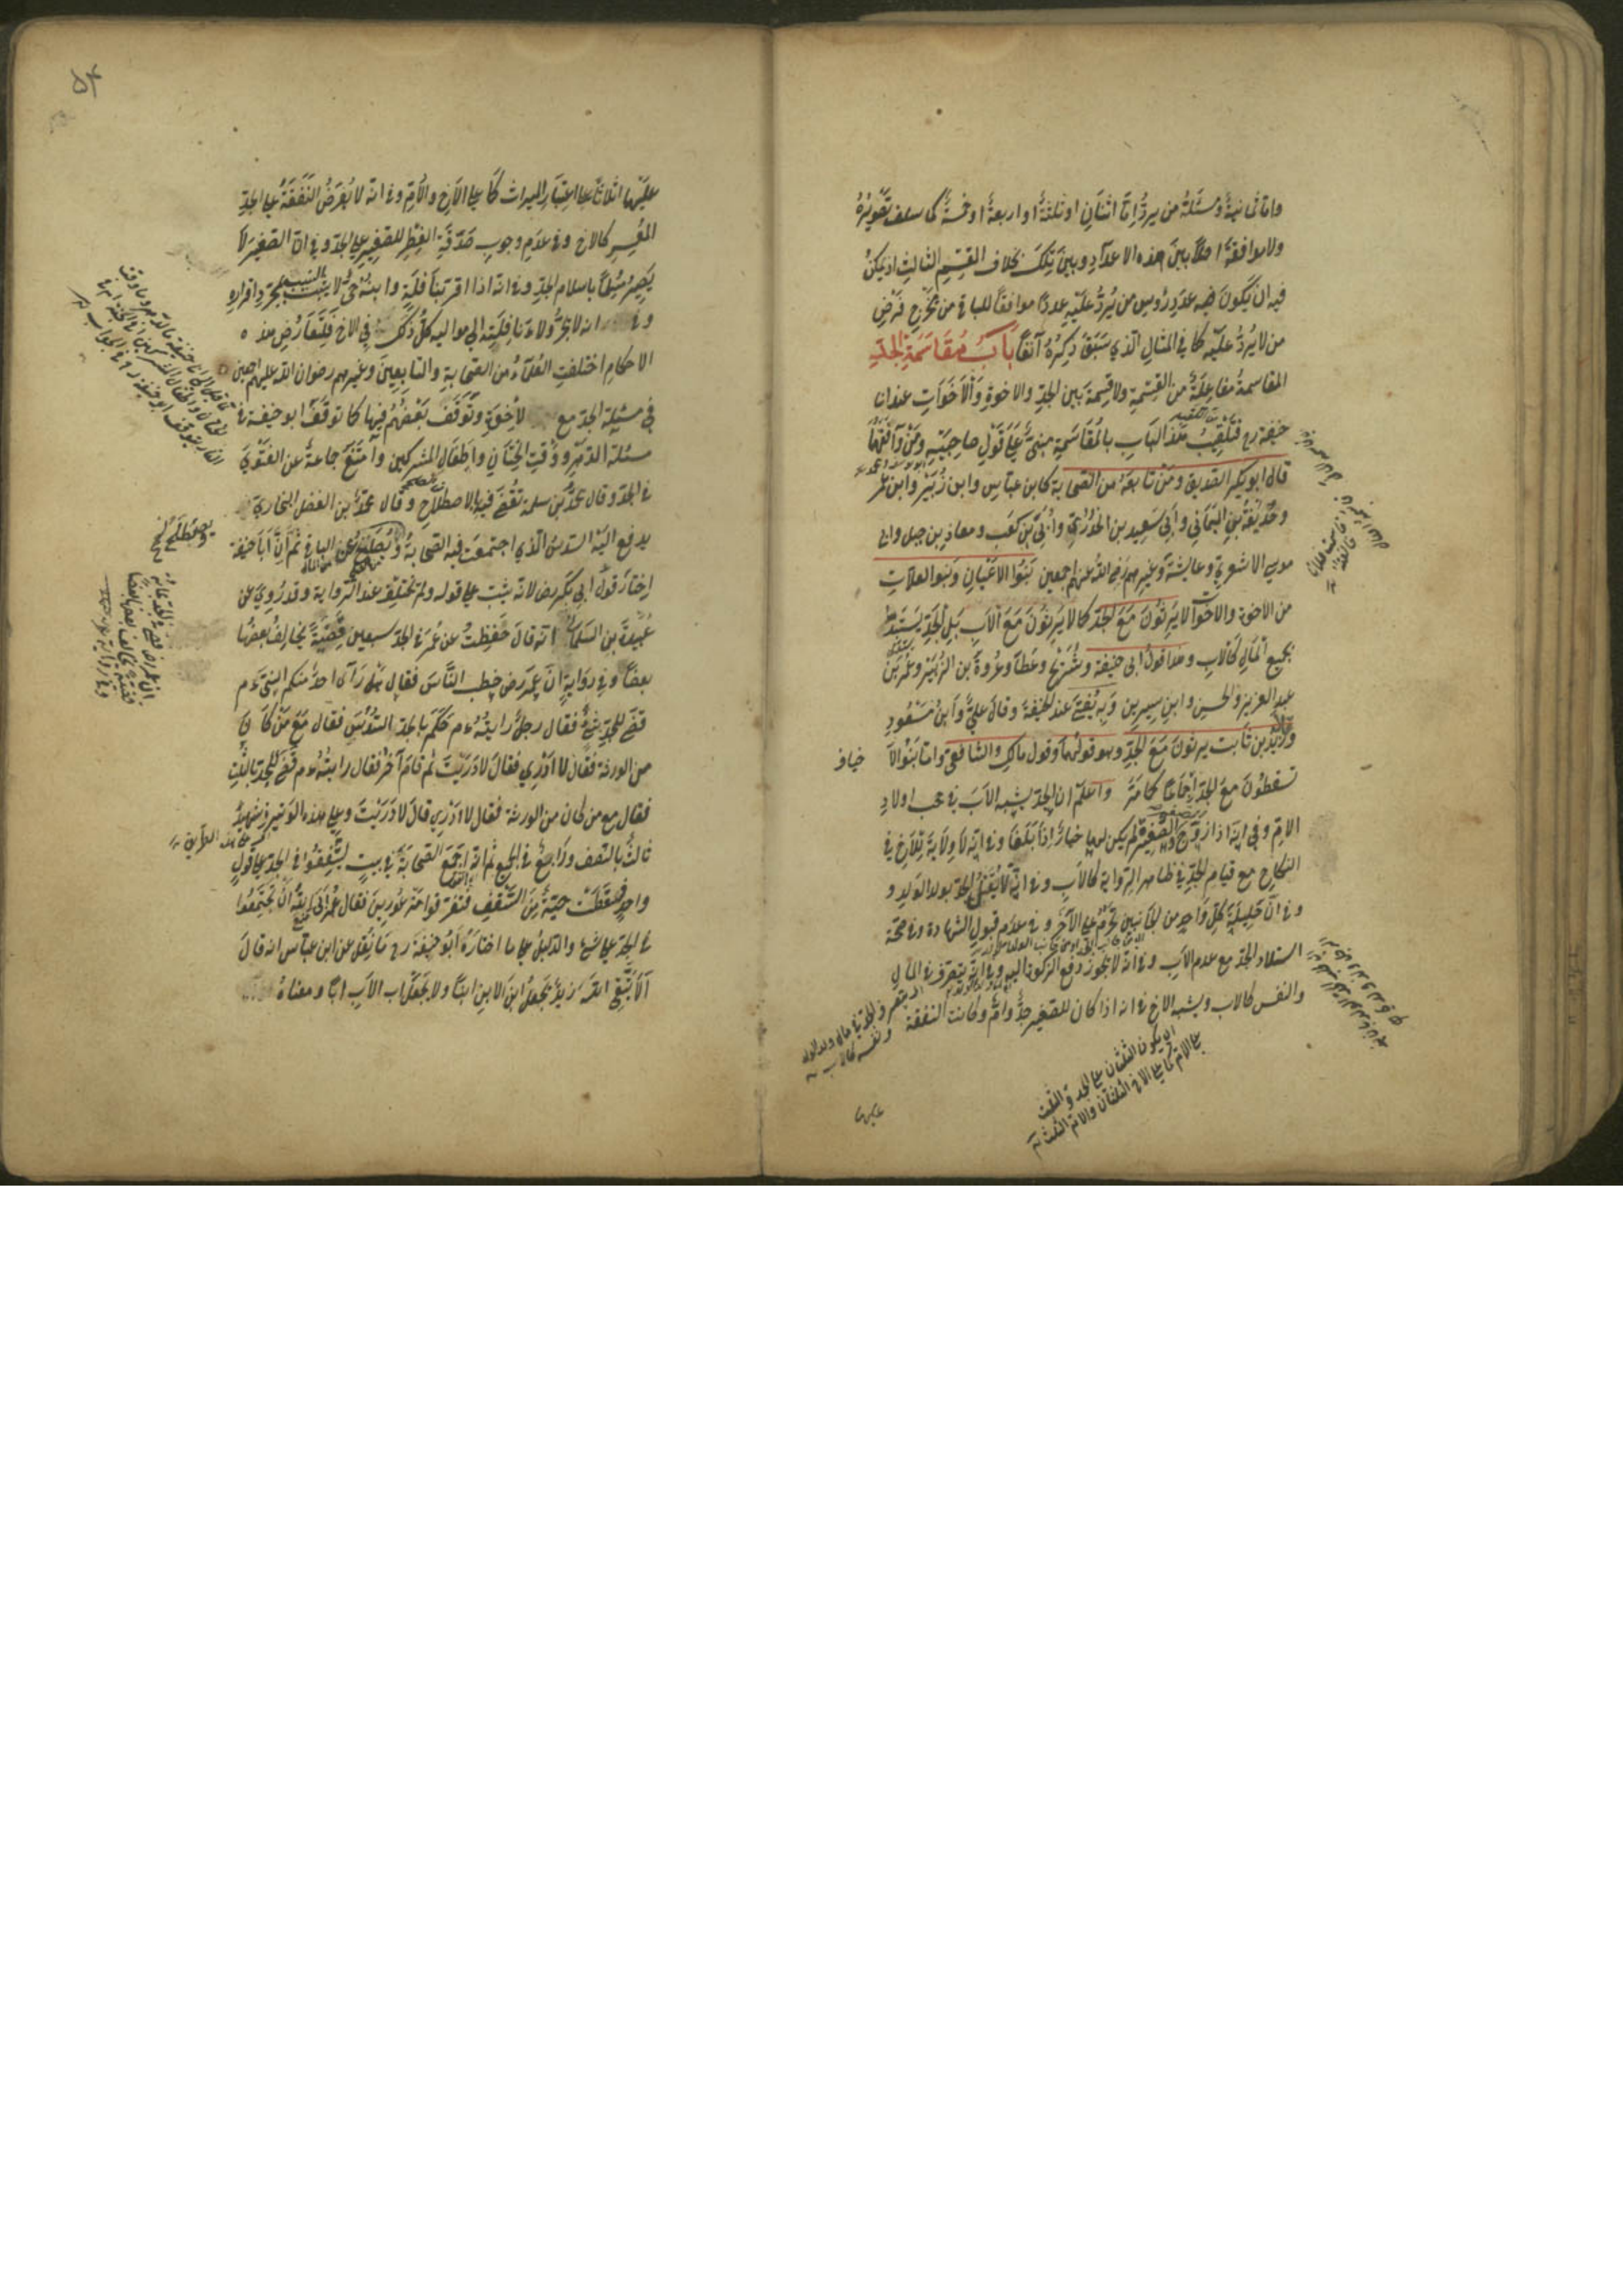 واما ثمانية ومسئلة من يرد اما اثنان او ثلثة او اربعة او خمسة كما سلف تقريره
ولا موافقة اصلا بين هذه الاعداد وبين تلك بخلاف القسم الثالث اذ يمكن
فيه ان يكون فيه عدد رؤس من يرد عليه عددا موافقا للباقى من مخرج فرض
من لا يرد عليه كما في المثال الذي سبق ذكره آنفا باب مقاسمة الجد
المقاسمة مفاعلة من القسمة ولا قسمة بين الجد والاخوة والاخوات عند ابى
حنيفة رح فتلقيب هذا الباب بالمقاسمة مبني على قول صاحبيه ومن وافقهما
قال ابو بكر الصديق ومن تابعه من الصحابة كابن عباس وابن زبير وابن عمر
وحذيفة بن اليماني وابي سعيد بن الخدري وابي بن كعب ومعاذ بن جبل وابى
موسى الاشعري وعايشة وغيرهم رضي الله عنهم اجمعين بنوا الاعيان وبنو العلات
من الاخوة والاخوات لا يرثون مع الجد كما لا يرثون مع الاب بل الجد يستبد
بجميع المال كالاب وهذا قول ابى حنيفة وشريح وعطاء وعروة بن الزبير وعمر بن
عبد العزيز والحسن وابن سيرين وبه يفتى عند الحنيفة وقال علي وابن مسعود
وزيد بن ثابت يرثون مع الجد وهو قولهما وقول مالك والشافعي واما بنو الا
خياف
تسقطون مع الجد اجماعا كما مر واعلم ان الجد يشبه الاب في حجب اولاد
الام وفي انه اذا زوج الصغيرة لم يكن لهما خيار اذا بلغا وفى انه لا ولاية للاخ في
النكاح مع قيام الجد في ظاهر الرواية كالاب وفى انه لا يقتل الجد بولد الولد و
وفى ان حليلة كل واحد من الجانبين تحرم على الآخر وفى عدم قبول الشهادة وفى صحة
استلاد الجد مع عدم الاب وفى انه لا يجوز دفع الزكوة اليه وفى انه يتصرف في المال
والنفس كالاب ويشبه الاخ في انه اذا كان للصغير جد وام وكانت النفقة
اى يكون الثلثان على الجد والثلث
على الام كما على الاخ الثلثان والام الثلث
عليهما
۵۴
عليهما اثلاثا على اعتبار الميراث كما على الاخ والام وفى انه لا يفرض النفقة على الجد
المعسر كالاخ وفى عدم وجوب صدقة الفطر للصغير على الجد وفى ان الصغير لا
يصير مسلما باسلام الجد وفى انه اذا اقر بنافلة وابنه حي لا يثبت النسب بمجرد اقراره
وفى انه لا يجر ولاء نافلته الى مواليه كل ذلك في الاخ فلتعارض هذه
الاحكام اختلفت العلماء من الصحابة والتابعين وغيرهم رضوان الله عليهم اجمعين
في مسئلة الجد مع الاخوة وتوقف بعضهم فيها كما توقف ابو حنيفة في
مسئلة الدهر ووقت الختان واطفال المشركين وامتنع جماعة عن الفتوى
في الجد وقال محمد بن سلمة نقضى فيه بالاصطلاح وقال محمد بن الفضل البخاري
يدفع اليه السدس الذي اجتمعت فيه الصحابة ويصطلح عن الباقى ثم ان ابا حنيفة
اختار قول ابى بكر رض لانه يثبت على قوله ولم تختلف عند الرواية وقد روي عن
عبيدة بن السلماني انه قال حفظت عن عمر في الجد سبعين قضية يخالف بعضها
بعضا وفي رواية ان عمر رض خطب الناس فقال هل رأى احد منكم النبي ءم
قضى للجد شيئ فقال رجل رايته ءم حكم بالجد السدس فقال مع من كان
من الورثة فقال لا ادري فقال لا دريت ثم قام آخر فقال رايته ءم قضى للجد بالثلث
فقال مع من كان من الورثة فقال لا ادري قال لا دريت وعلى هذه الوتيرة شهد
ثالث بالنصف ورابع في الجميع ثم انه اجتمع الصحابة في بيت ليتفقوا في الجد على قول
واحد فسقطت حية من السقف فتفرقوا مذعورين فقال عمر ابى الله ان تجتمعوا
في الجد على شيئ والدليل على ما اختاره ابو حنيفة رح ما نقل عن ابن عباس انه قال
الا يتقي الله زيد يجعل ابن الابن ابنا ولا يجعل اب الاب ابا ومعناه